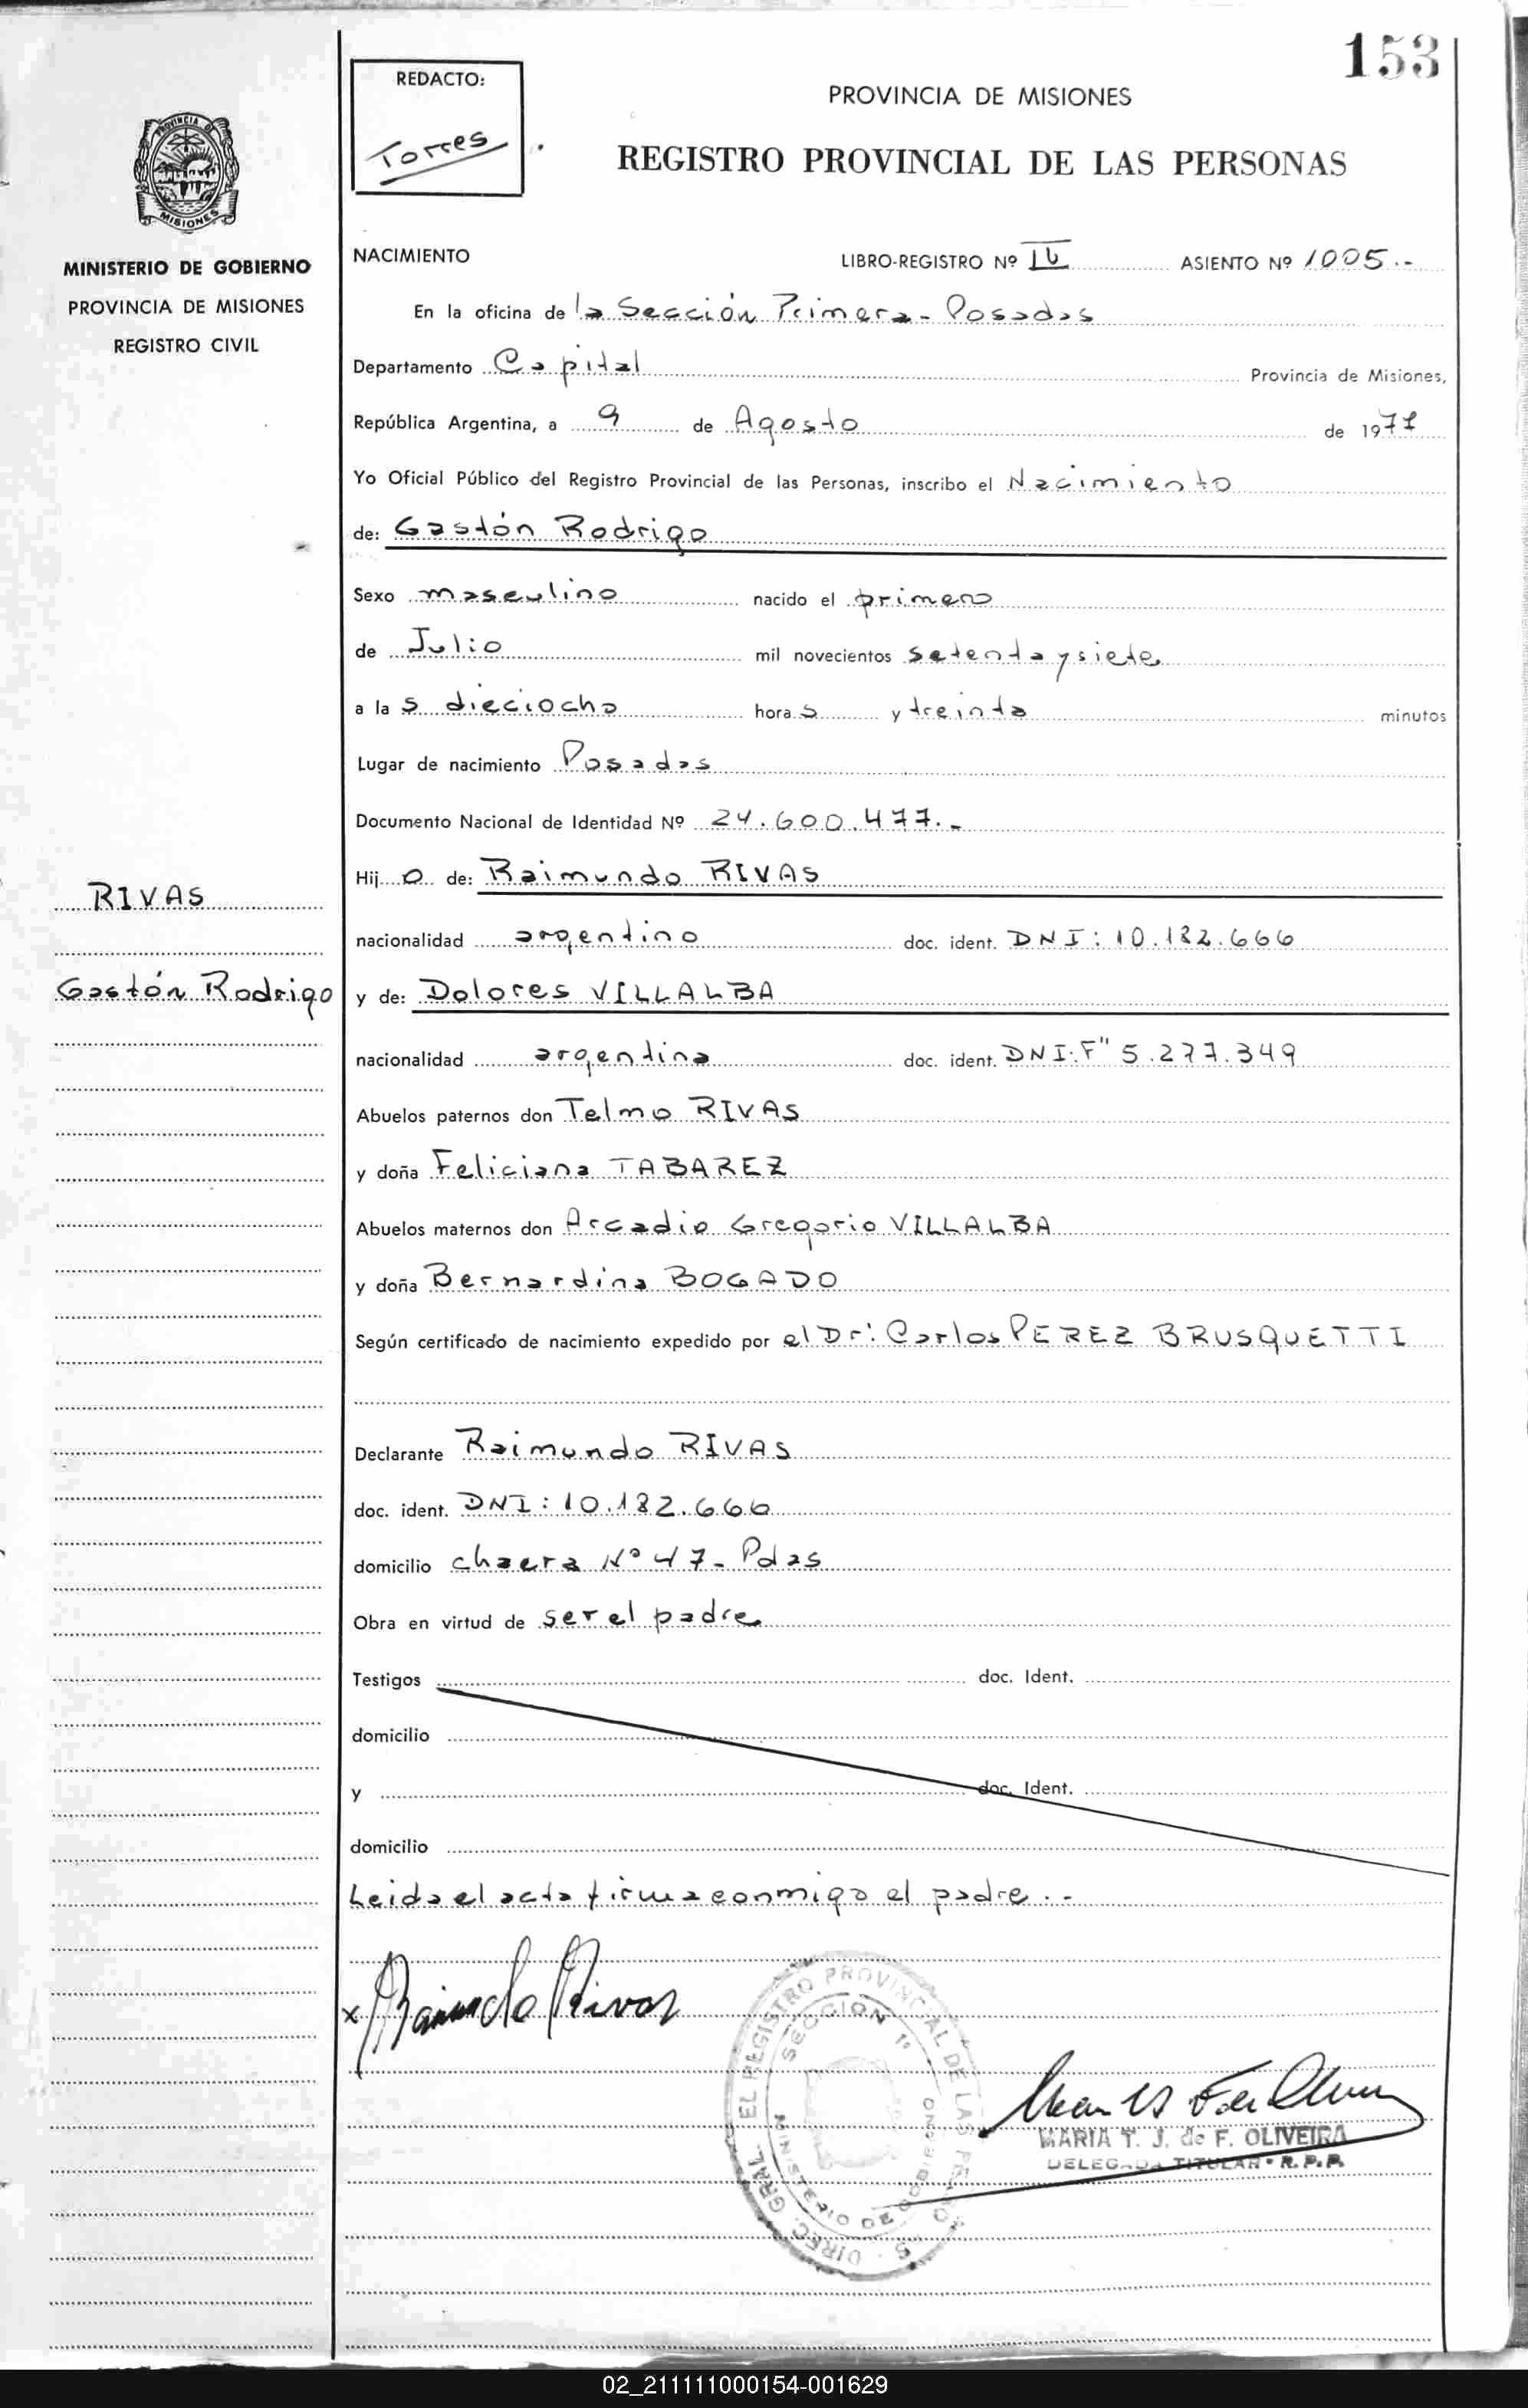 153
REDACTO:
Torres
PROVINCIA DE MISIONES
REGISTRO PROVINCIAL DE LAS PERSONAS
PROVINCIA DE
MISIONES
MINISTERIO DE GOBIERNO
PROVINCIA DE MISIONES
REGISTRO CIVIL
NACIMIENTO
LIBRO-REGISTRO Nº ASIENTO Nº 1005.-
En la oficina de la Sección Primera - Posadas
Departamento Capital Provincia de Misiones,
República Argentina, a 9 de Agosto de 1977
Yo Oficial Público del Registro Provincial de las Personas, inscribo el Nacimiento
de: Gastón Rodrigo
Sexo masculino nacido el primero
de Julio mil novecientos setenta y siete
a la s dieciocho hora s y treinta minutos
Lugar de nacimiento Posadas
Documento Nacional de Identidad Nº 24.600.477.-
Hij o de: Raimundo RIVAS
RIVAS
nacionalidad argentino doc. ident. DNI: 10.182.666
Gastón Rodrigo
y de: Dolores VILLALBA
nacionalidad argentina doc. ident. DNI: F" 5.277.349
Abuelos paternos don Telmo RIVAS
y doña Feliciana TABAREZ
Abuelos maternos don Arcadio Gregorio VILLALBA
y doña Bernardina BOGADO
Según certificado de nacimiento expedido por el Dr: Carlos PEREZ BRUSQUETTI
Declarante Raimundo RIVAS
doc. ident. DNI: 10.182.666
domicilio chacra Nº 47- Pdas
Obra en virtud de ser el padre
Testigos doc. Ident.
domicilio
y doc. Ident.
domicilio
Leida el acta firma conmigo el padre.-
x Raimundo Rivas
DIREC. GRAL. EL REGISTRO PROVINCIAL DE LAS PERSONAS
SECCION 1ª
MINISTERIO DE GOBIERNO
MARIA T. J. de F. OLIVEIRA
DELEGADA TITULAR - R.P.P.
02_211111000154-001629